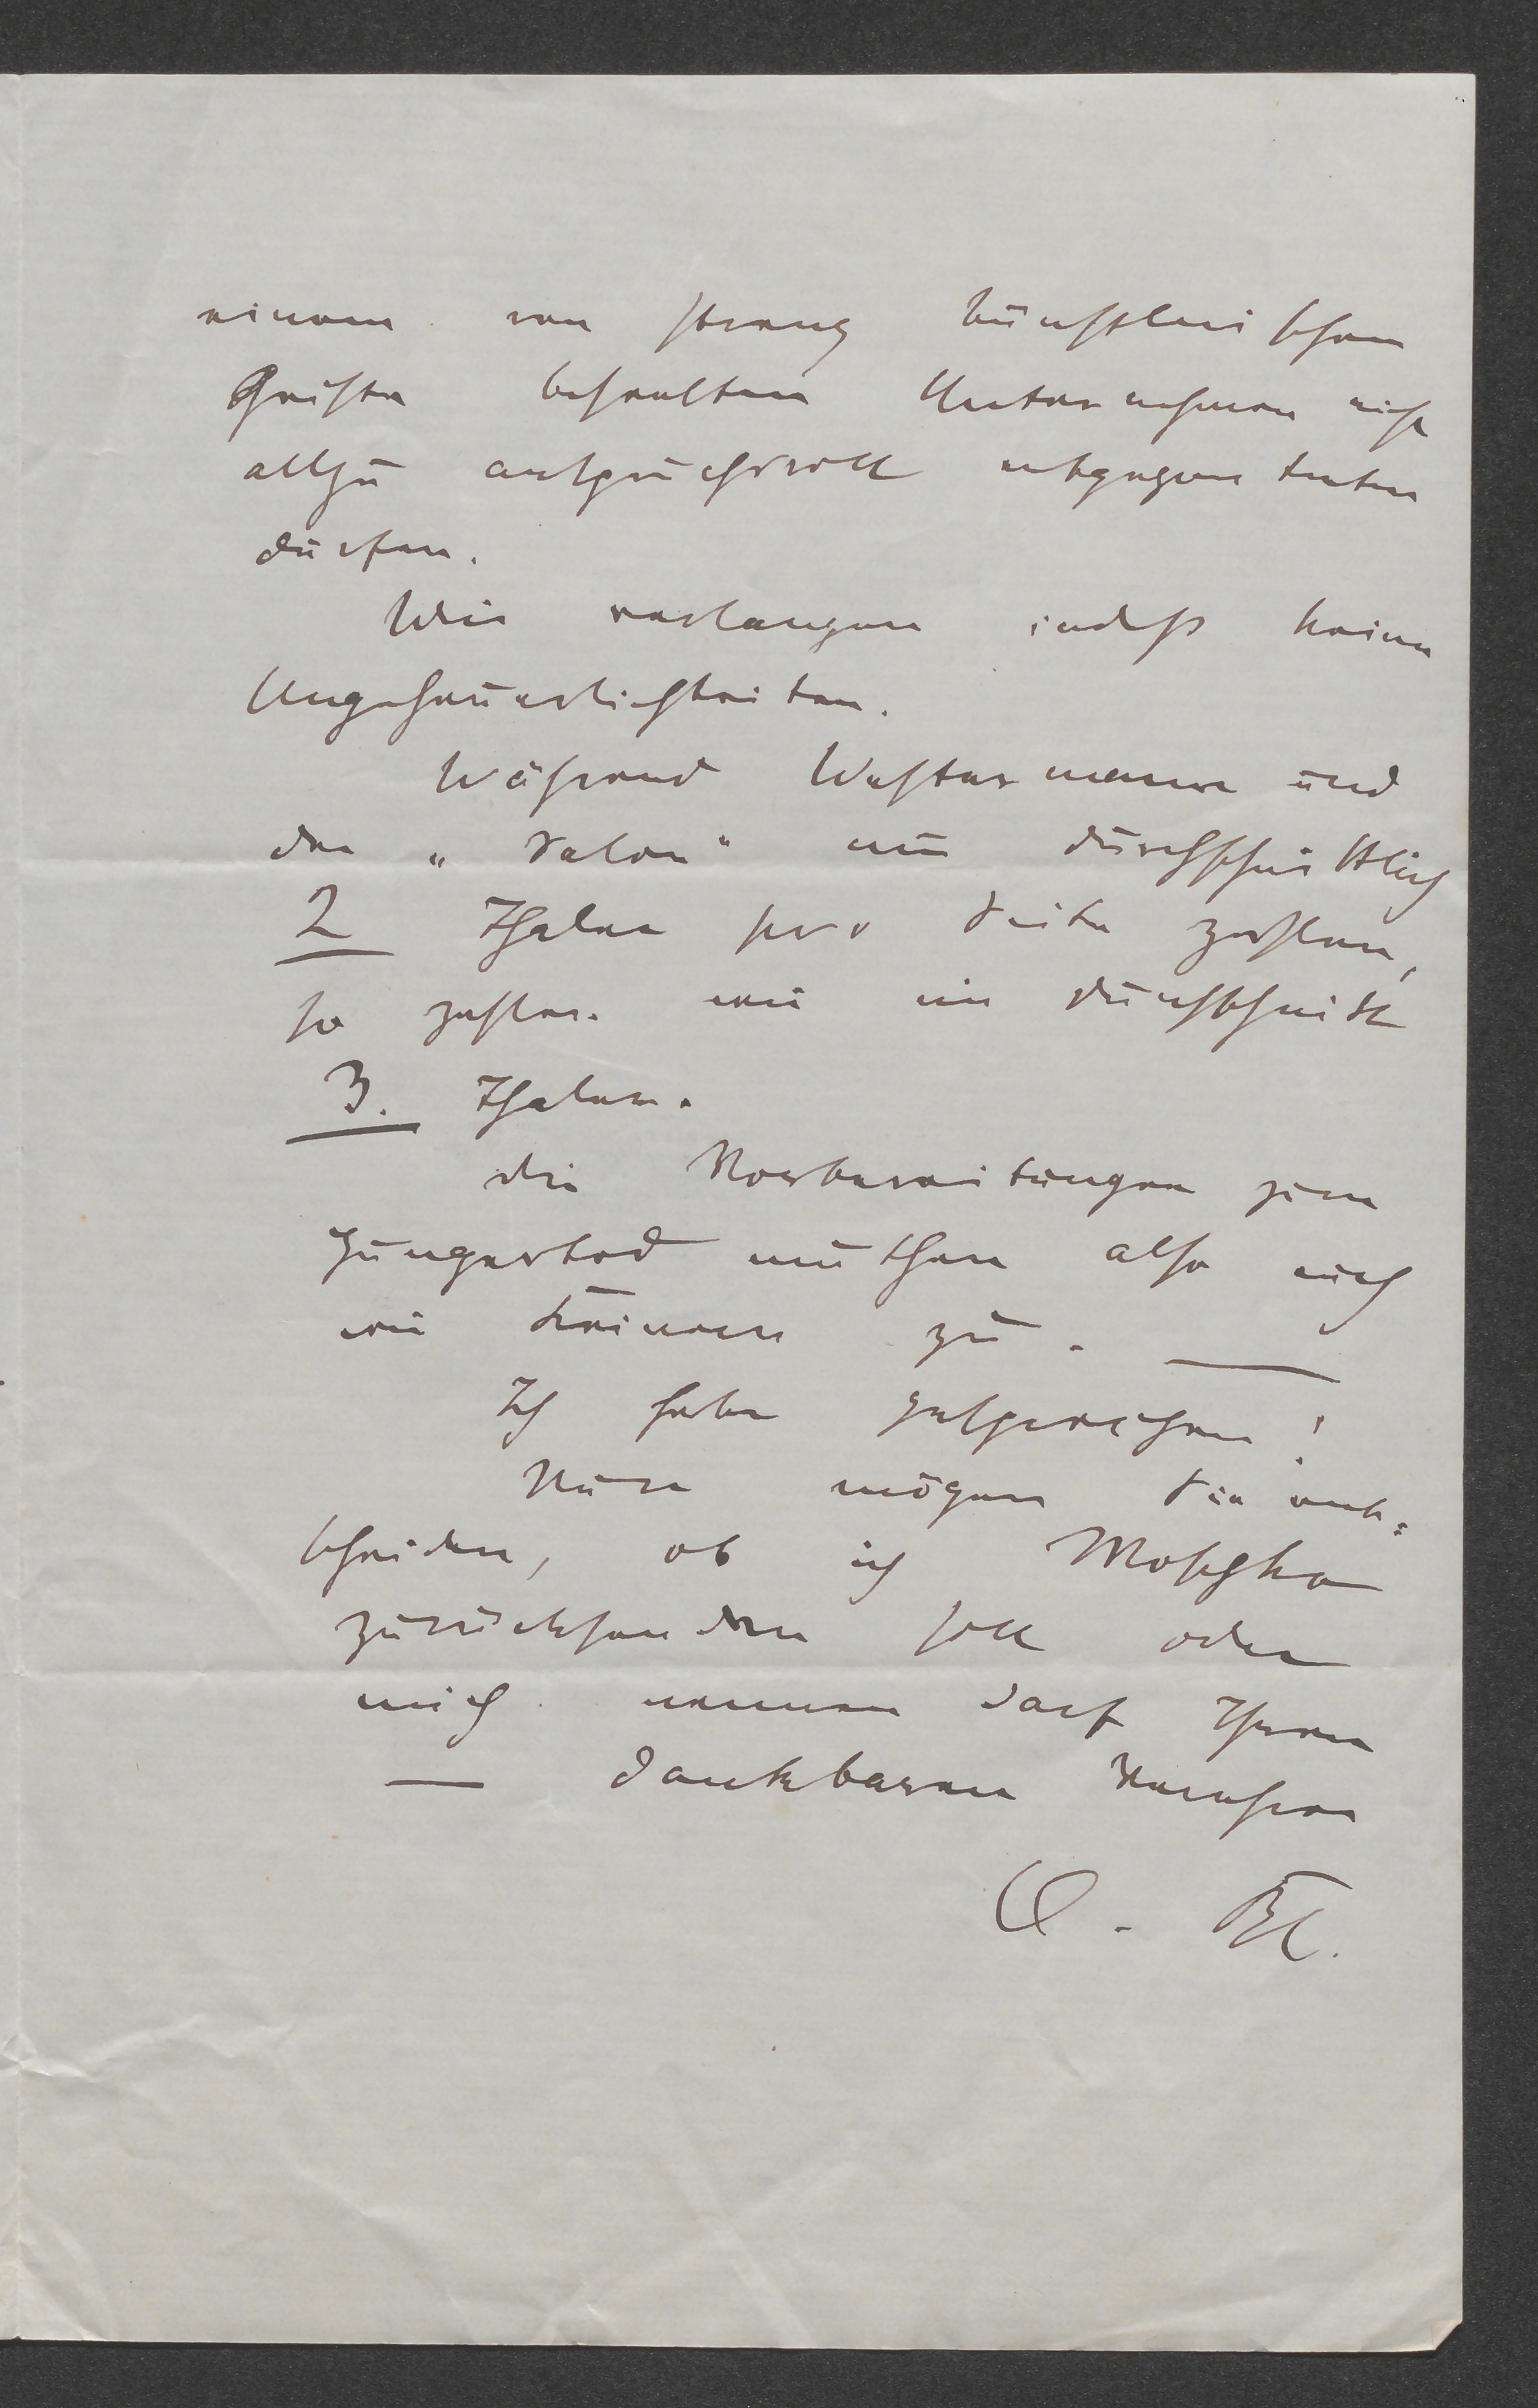 einem von streng künstlerischem
Geiste beseelten Unternehmen nicht
allzu anspruchsvoll entgegen treten
dürfen.
Wir verlangen indeß keine
Ungeheuerlichkeiten.
Während Westermann und
der „Salon“ nur durchschnittlich
2 Thaler pro Seite zahlen,
so zahlen wir im Durchschnitt
3. Thaler.
die Vorbereitungen zum
Hungertod muthen also auch
wir keinem zu. —
Ich habe gesprochen!
Nun mögen Sie ent:
scheiden, ob ich Moschko
zurücksenden soll oder
mich nennen darf Ihren
— dankbaren Verehrer
O. Bl.